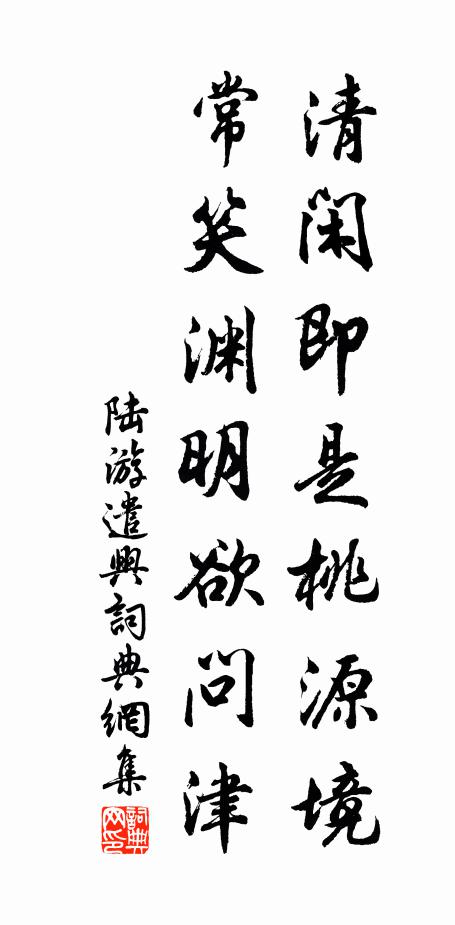 清闲即是桃源境
常笑渊明欲问津
陆游遣興詞典網集
詞典网印